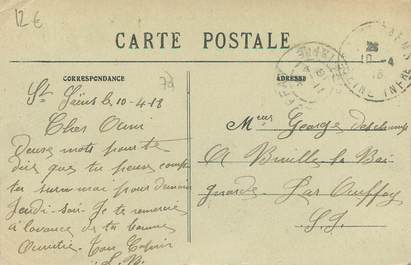 12 €
CARTE POSTALE
CORRESPONDANCE
70
ADRESSE
10-4-18
Cher Ami
Deux mots pour te
dire que tu peux comp
ter sur moi pour demain
Jeudi soir. Je te remercie
à l'avance de ta bonne
Amitié. Ton Copain
Georges Deschamps
A Biville la Bai
gnarde Par Auffay
S.I.